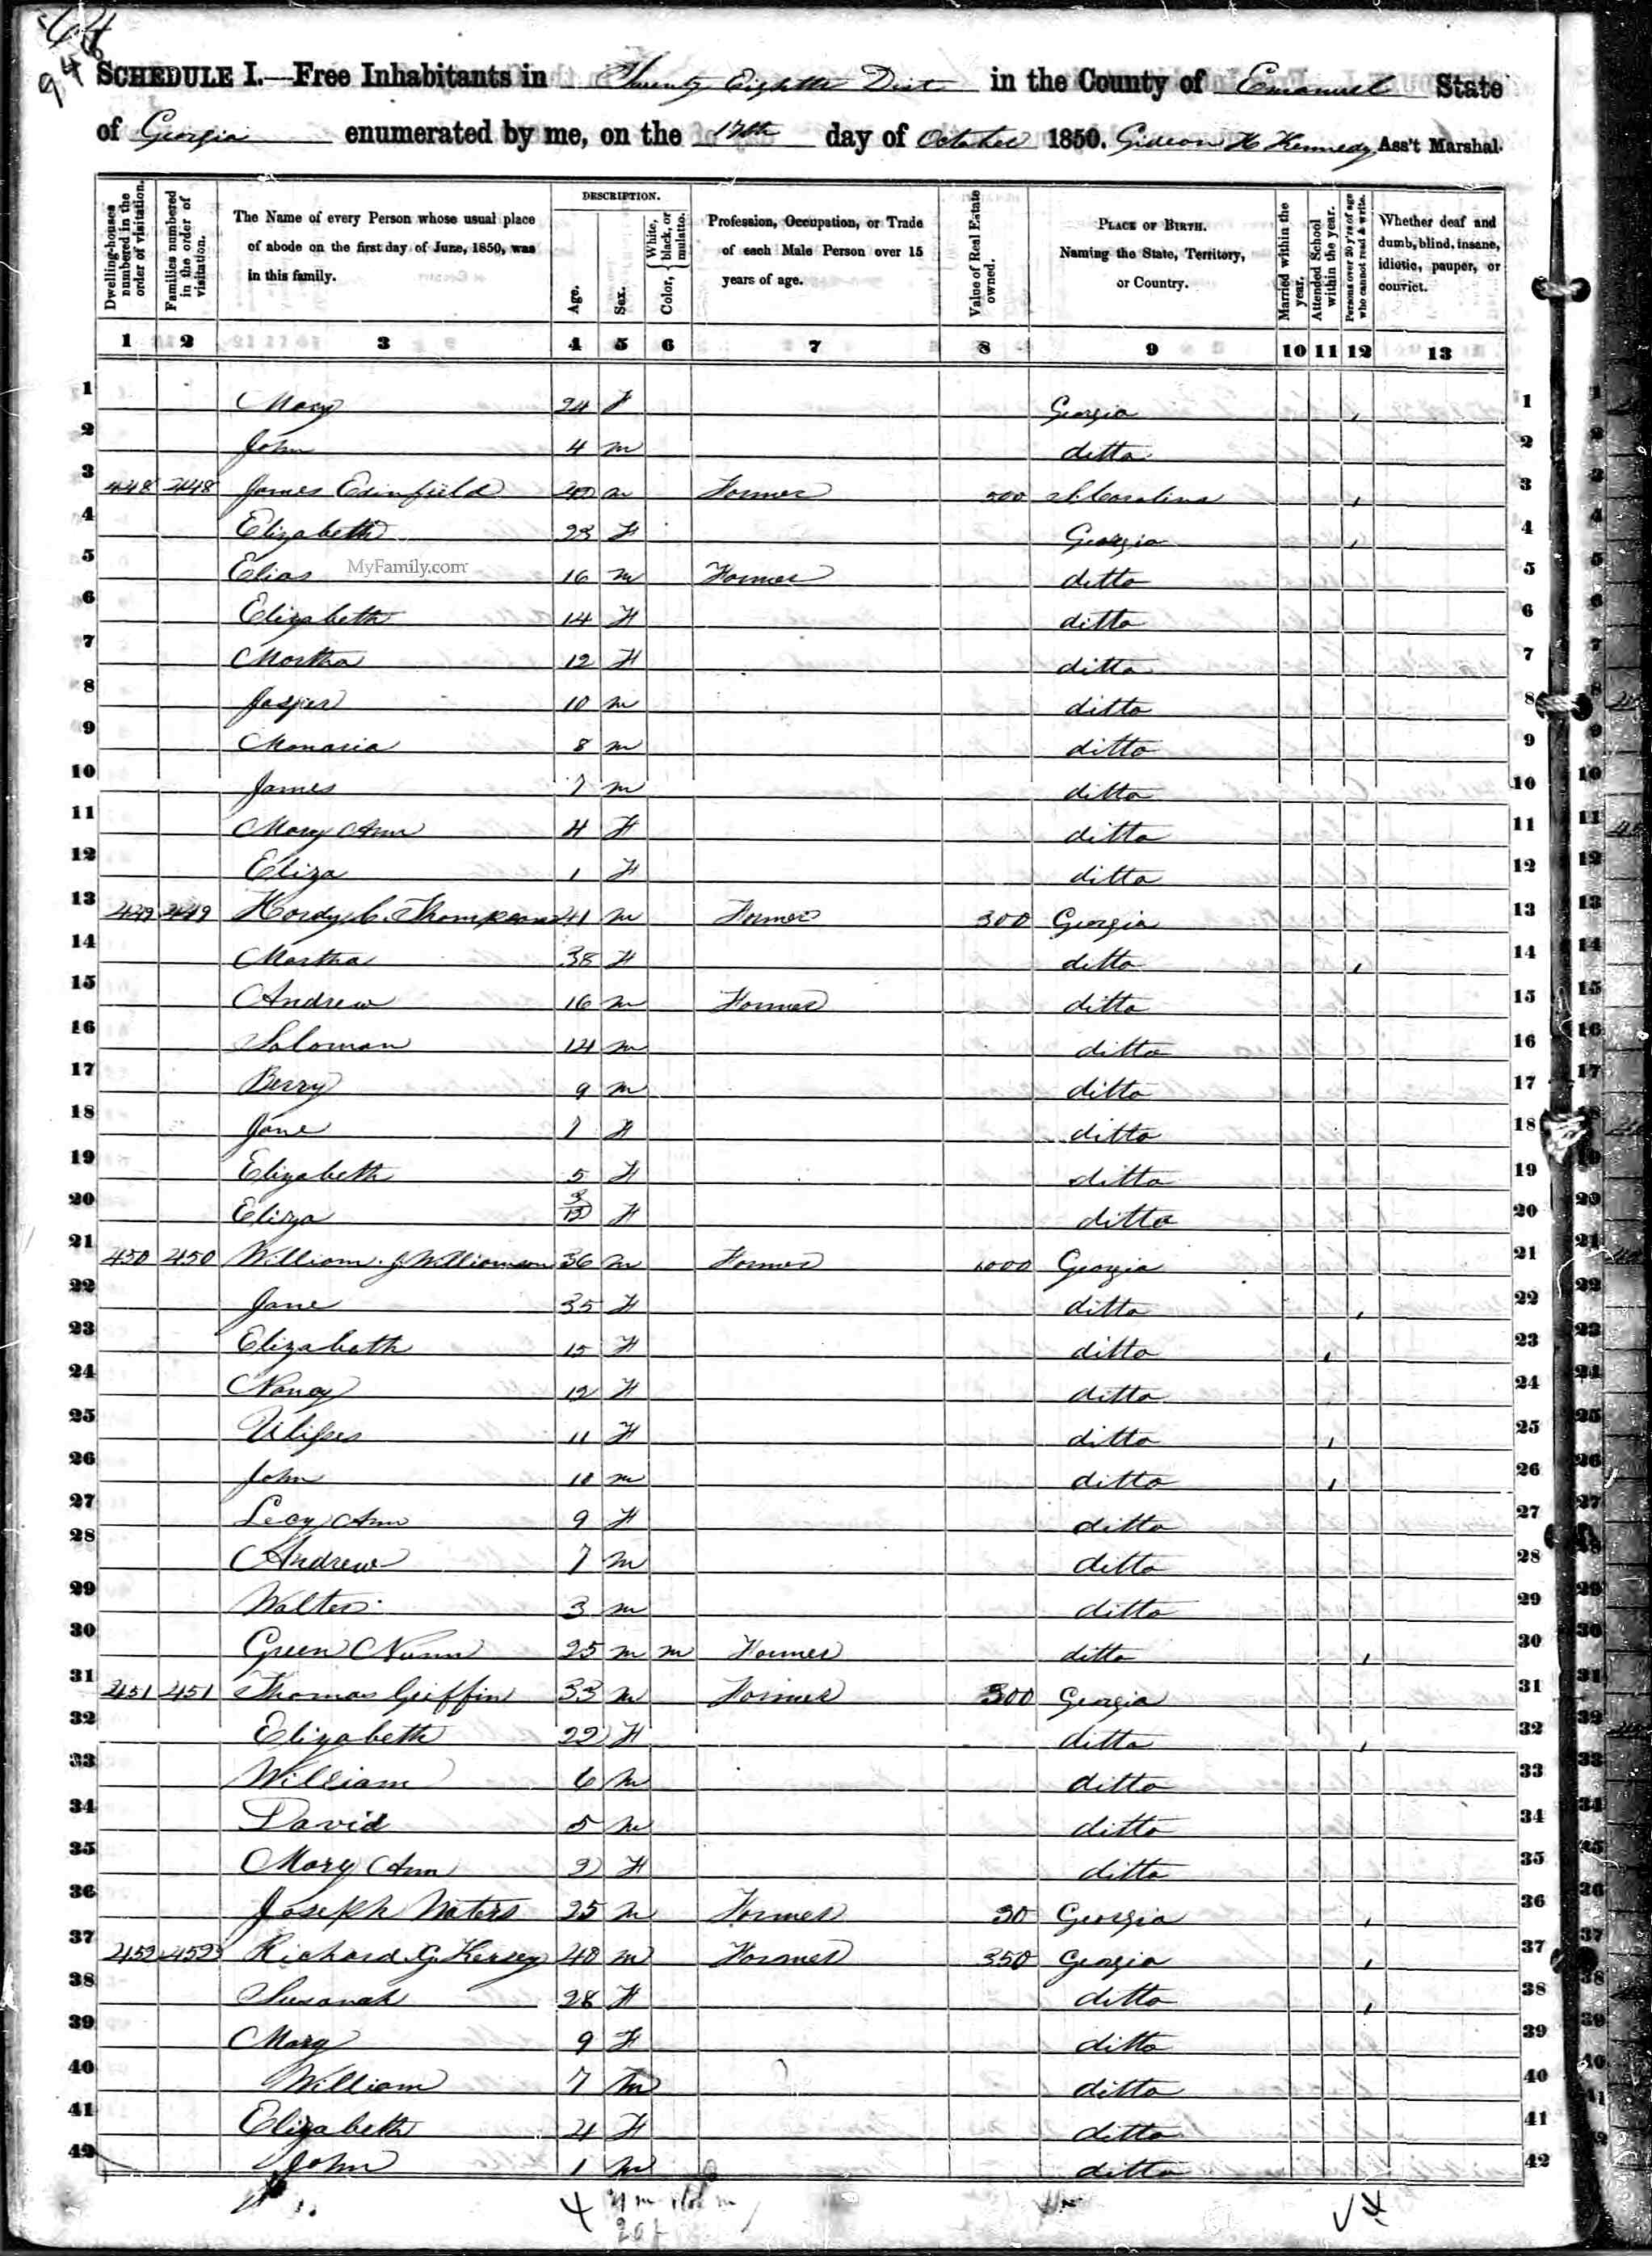 SCHEDULE I.—Free Inhabitants in Twenty Eighth Dist in the County of Emanuel State
of Georgia enumerated by me, on the 17th day of October 1850. Gideon H Kennedy Ass't Marshal.
Dwelling-houses numbered in the order of visitation.
Families numbered in the order of visitation.
The Name of every Person whose usual place of abode on the first day of June, 1850, was in this family.
DESCRIPTION.
Age.
Sex.
Color, White, black, or mulatto.
Profession, Occupation, or Trade of each Male Person over 15 years of age.
Value of Real Estate owned.
PLACE OF BIRTH. Naming the State, Territory, or Country.
Married within the year.
Attended School within the year.
Persons over 20 y'rs of age who cannot read & write.
Whether deaf and dumb, blind, insane, idiotic, pauper, or convict.
1 2 3 4 5 6 7 8 9 10 11 12 13
1 Mary 24 F Georgia 1
2 John 4 m ditto 2
3 448 448 James Edinfield 40 m Farmer 500 S. Carolina 3
4 Elizabeth 23 F Georgia 4
5 Elias MyFamily.com 16 m Farmer ditto 5
6 Elizabeth 14 F ditto 6
7 Martha 12 F ditto 7
8 Jasper 10 m ditto 8
9 Manasia 8 m ditto 9
10 James 7 m ditto 10
11 Mary Ann 4 F ditto 11
12 Eliza 1 F ditto 12
13 449 449 Hardy C. Thompson 41 m Farmer 300 Georgia 13
14 Martha 38 F ditto 14
15 Andrew 16 m Farmer ditto 15
16 Soloman 14 m ditto 16
17 Berry 9 m ditto 17
18 Jane 7 F ditto 18
19 Elizabeth 5 F ditto 19
20 Eliza 3/12 F ditto 20
21 450 450 William J. Williamson 36 m Farmer 1000 Georgia 21
22 Jane 35 F ditto 22
23 Elizabeth 15 F ditto 23
24 Nancy 12 F ditto 24
25 Ulisses 11 F ditto 25
26 John 10 m ditto 26
27 Lecy Ann 9 F ditto 27
28 Andrew 7 m ditto 28
29 Walter 3 m ditto 29
30 Green Nunn 25 m m Farmer ditto 30
31 451 451 Thomas Griffin 33 m Farmer 300 Georgia 31
32 Elizabeth 22 F ditto 32
33 William 6 m ditto 33
34 David 5 m ditto 34
35 Mary Ann 2 F ditto 35
36 Joseph Waters 25 m Farmer 30 Georgia 36
37 452 452 Richard G. Kersey 40 m Farmer 350 Georgia 37
38 Susanah 28 F ditto 38
39 Mary 9 F ditto 39
40 William 7 m ditto 40
41 Elizabeth 4 F ditto 41
42 John 1 m ditto 42